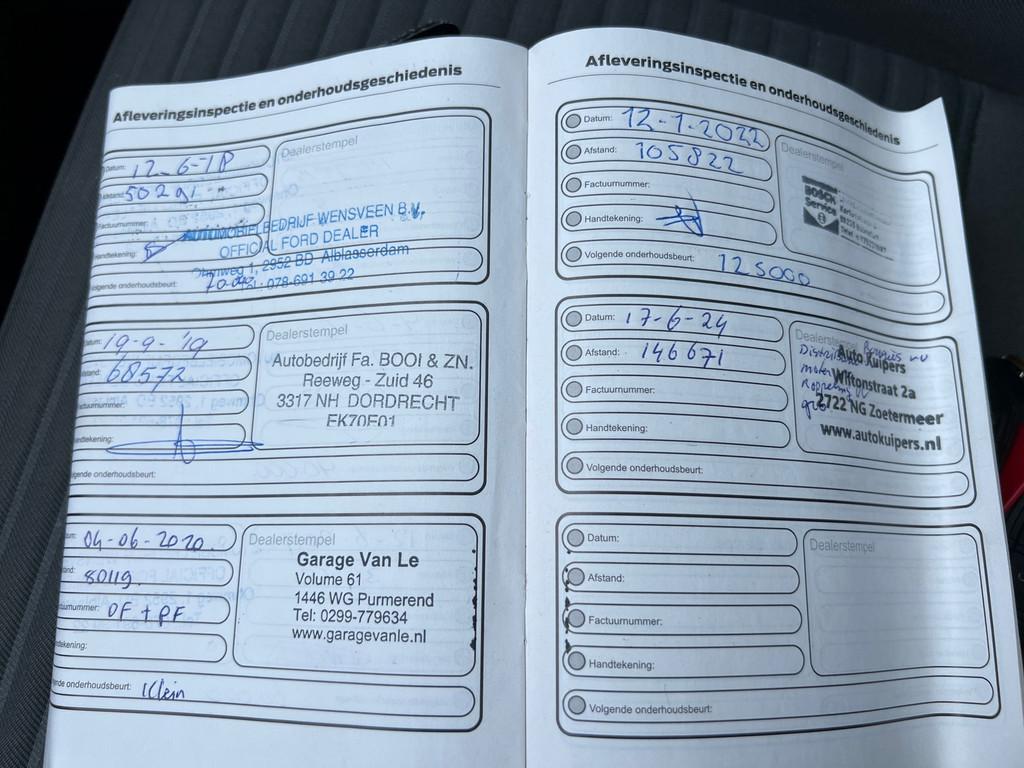 Afleveringsinspectie en onderhoudsgeschiedenis
Datum: 12-6-18
Afstand: 50291
Factuurnummer:
Handtekening:
Volgende onderhoudsbeurt:
Dealerstempel
AUTOMOBIELBEDRIJF WENSVEEN B.V.
OFFICIAL FORD DEALER
1, 2952 BD Alblasserdam
Tel.: 078-691 39 22
Datum: 19-9-'19
68572
Handtekening:
Volgende onderhoudsbeurt:
Dealerstempel
Autobedrijf Fa. BOOI & ZN.
Reeweg - Zuid 46
3317 NH DORDRECHT
EK70E01
04-06-2020
80119
OF + PF
Klein
Dealerstempel
Garage Van Le
Volume 61
1446 WG Purmerend
Tel: 0299-779634
www.garagevanle.nl
Afleveringsinspectie en onderhoudsgeschiedenis
Datum: 12-1-2022
Afstand: 105822
Factuurnummer:
Handtekening:
Volgende onderhoudsbeurt: 125000
Dealerstempel
BOSCH
Service
Datum: 17-6-24
Afstand: 146671
Factuurnummer:
Handtekening:
Volgende onderhoudsbeurt:
Auto Kuipers
Wiltonstraat 2a
2722 NG Zoetermeer
www.autokuipers.nl
Datum:
Afstand:
Factuurnummer:
Handtekening:
Volgende onderhoudsbeurt:
Dealerstempel